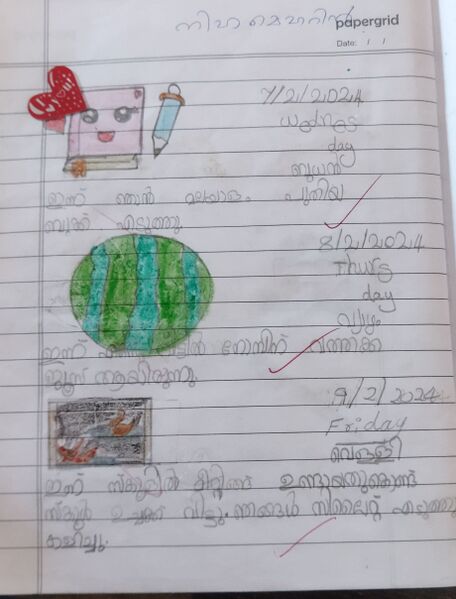 നിഹ മെഹറിൻ
papergrid
Date: / /
7/2/2024
Wednes
day
ബുധൻ
ഇന്ന് ഞാൻ മലയാളം പുതിയ
ബുക്ക് എടുത്തു.
8/2/2024
Thurs
day
വ്യാഴം
ഇന്ന് വീട്ടിൽ നോമ്പിന് വത്തക്ക
ജ്യൂസ് ആയിരുന്നു.
9/2/2024
Friday
വെള്ളി
ഇന്ന് സ്കൂളിൽ മീറ്റിങ്ങ് ഉണ്ടായതുകൊണ്ട്
സ്കൂൾ ഉച്ചക്ക് വിട്ടു. ഞങ്ങൾ എടുത്തു
കളിച്ചു.